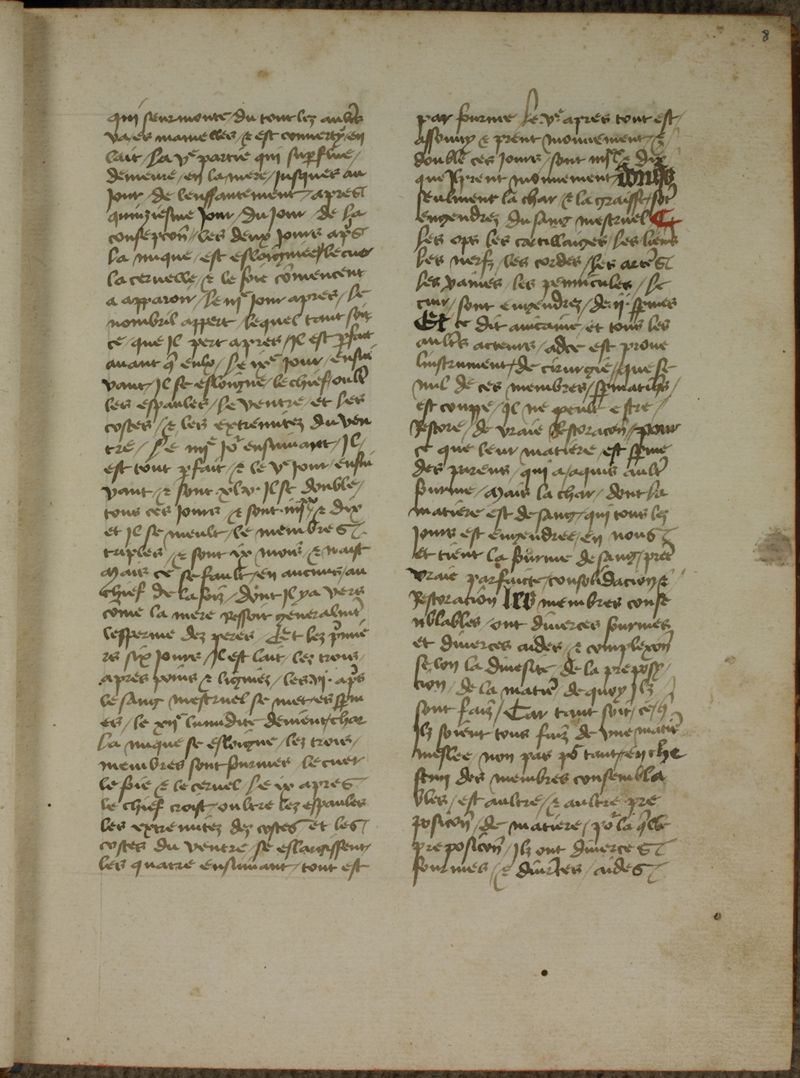 8
qui seurmonte / du tout lez aultres
va es mamelles / & est converty / en
lait / La ve partie qui superflue /
demeure / en la mere / jusques au
jour / de lenffantement / apres
quinziesme jour / du jour / de la
concepcon / les deux jours aps
la nuque / est esloignee / le cuer
la cervelle / & le foie comencent
a apparoir / le iije jour apres / le
nombril appert / lequel tant soit
ce / que il pert apres / il est pfait
avant q eulx / Le ixe jour / ensui
vant / il se esloigne / le chief oult
les espaules / le ventre / et les
costes / & les extremitez du ven
tre / Le iiije jor ensuivant / il /
est tout pfait / & le ve jour / ensui
vant / & sont xlv / il se double /
tous ces jours / & sont iiijxx & dix
et il se meult / le membre
triples / & sont ix mois & naist
Mais ce se fault / en aucuns / au
chief de la foiz / dont il ya vers
come la mere ressoit generalmt
lesperme dez peres Et lez pmie
rs six jours / il est lait / lez trois /
apres / & lignez / les vj aps
le sang mestruel se met es sperm
es / le xije lumidite devient / char
la nuque se esloigne / lez trois /
membres sont fourmes / le cuer
le foie & le cervel Le ix apres
le chief croist / oultre lez espaules
les extremitez dez costes et les
costes du ventre / se eslargissent /
les quatre ensuivant / tout est
par fourme Le ve apres tout est /
assouvy & prent mouvement / &
double ces jours / sont iiijxx & dix
que il prent mouvement doncques
seulment la char & la graisse / sot
engendrez du sang mestruel
Les ops les cartillaiges / les liens
les nerfz / les cordes / les arteres
Les vaines / les pennicules / le
cuir / sont engendrez / de ij spermes
Et ce dit avicaine / et tous les
aultres acteurs / adce est prouve
linstrument / de cirurgie / que se
nul de ces membres / spmatiqs /
est couppe / il ne peult estre /
Restore / de vraie Restoracon / pour
ce que leur matiere / est sperme
des parens / qui a / aquis aultre
fourme / Mais la char / dont la
matiere est de sang / qui tous lez
jours est engendree / en nous
et tient la fourme de sang / pret
vraie parfaicte / consolidacion &
Restoracion Les membres conse
nblables / ont diverces fourmes
et diverces aides / & complexon
selon la diversite / de la preposy /
cion / de la matie de quoy ilz
sont faiz / Car tant soit / ce / q
ilz soient tous faiz de une matie
meslee non pas por tant / en che
scun des membres consembla
bles / est aultre / & aultre pre
posicon / de matiere / por la qlle
preposicon / ilz ont diverces
fourmes / & diverces / aides